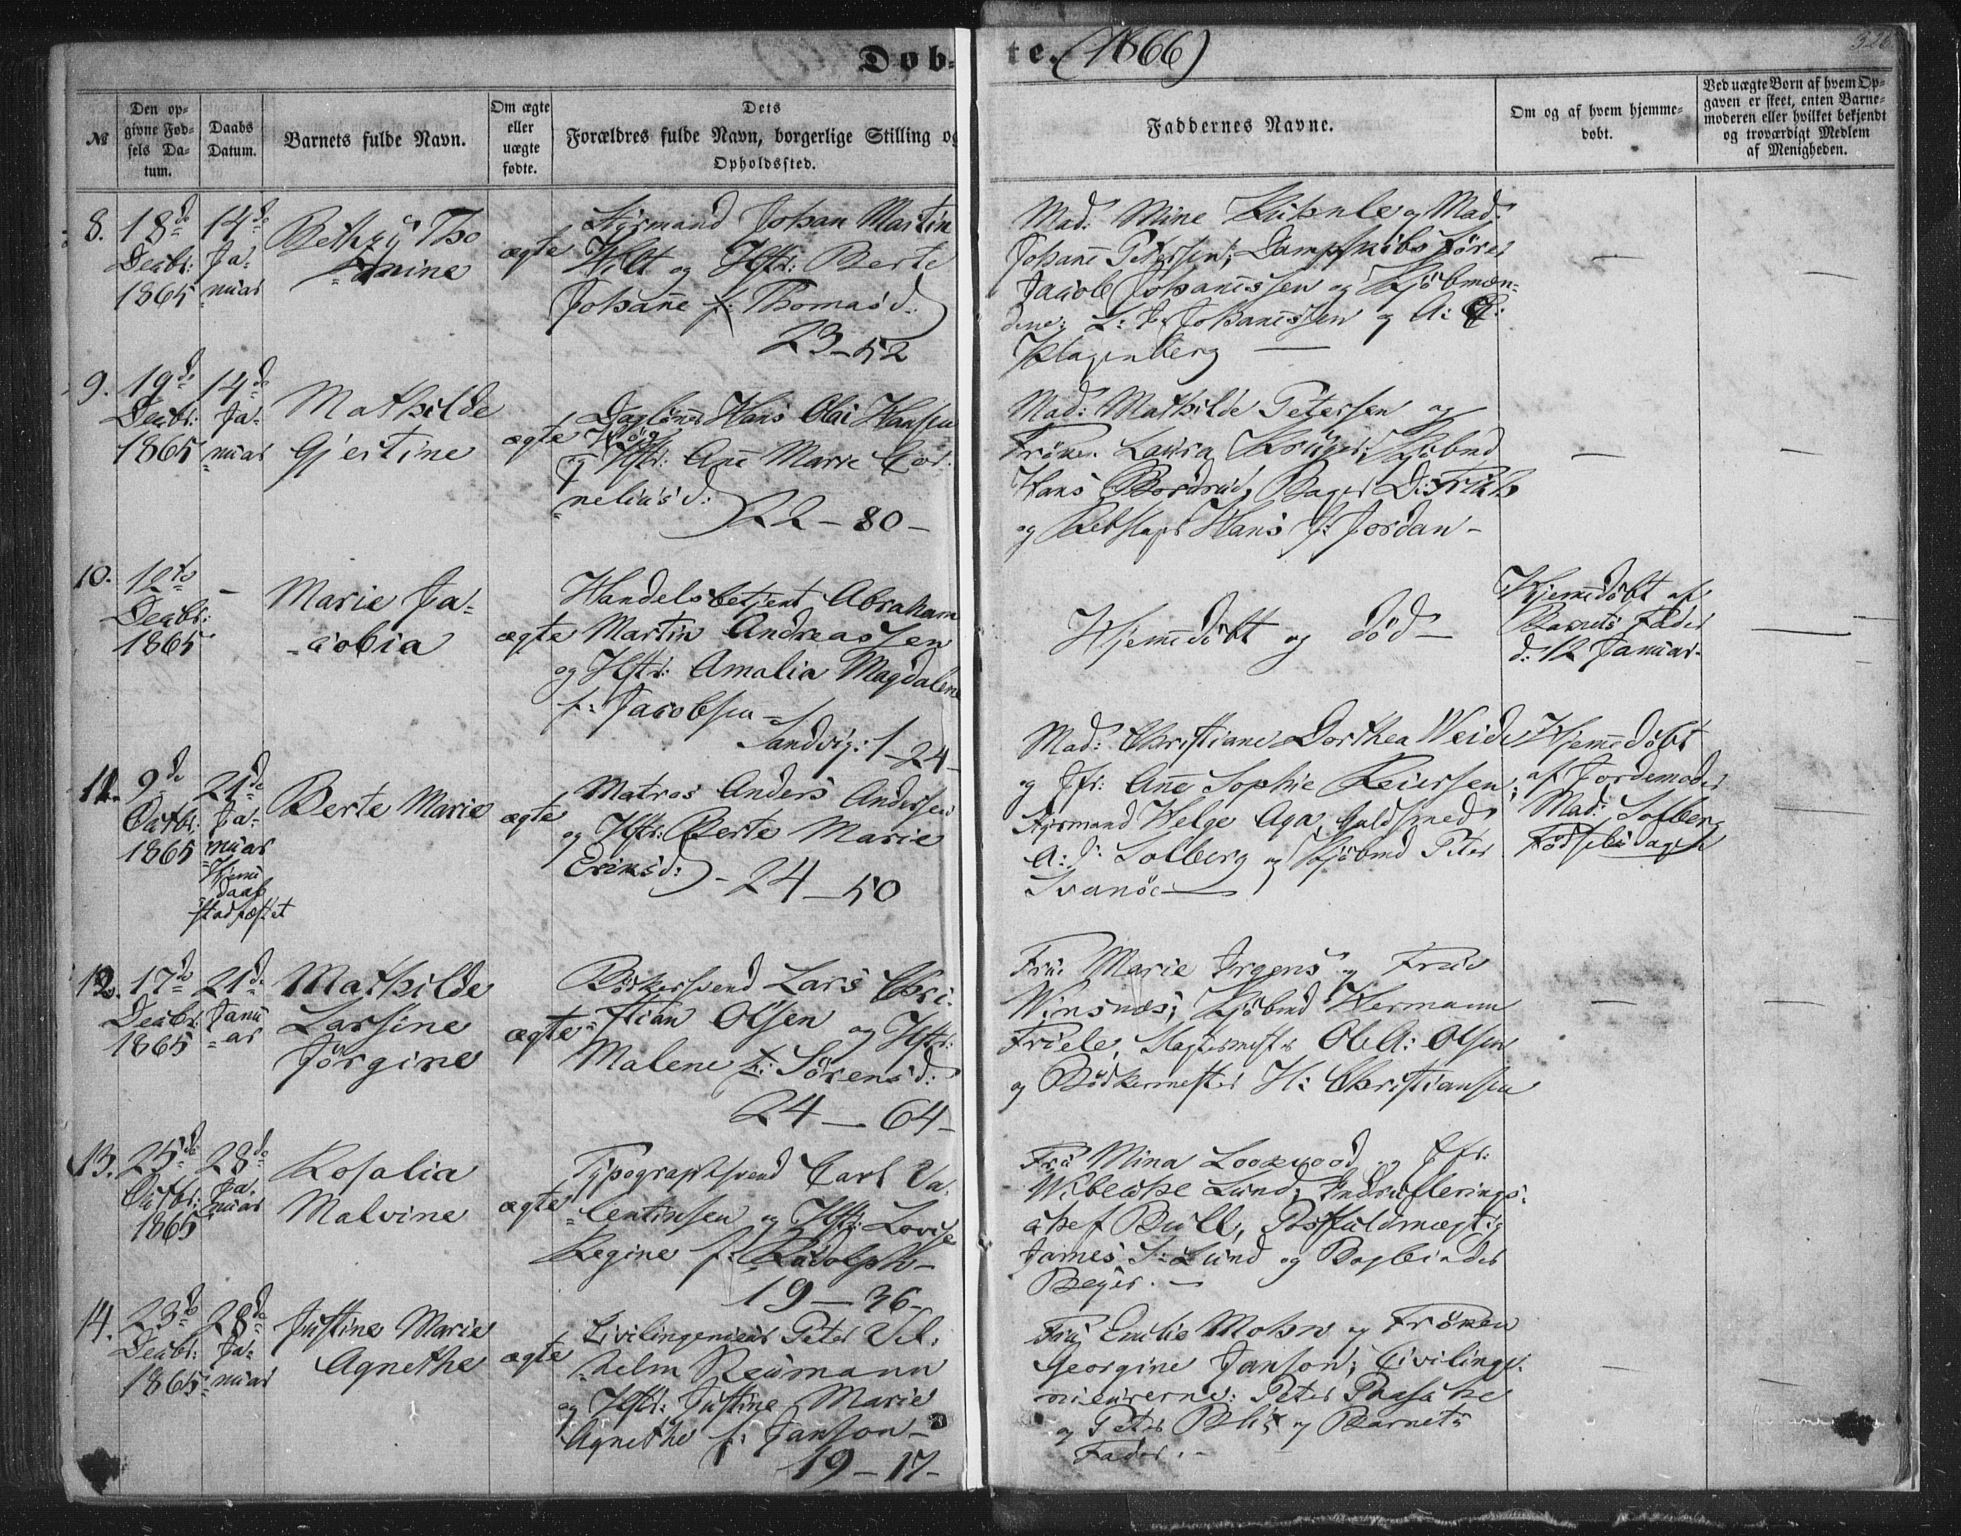 Døb-
te. (1866)
326
№
Den op-
givne Fød-
sels Da-
tum.
Daabs
Datum.
Barnets fulde Navn.
Om ægte
eller
uægte
fødte.
Dets
Forældres fulde Navn, borgerlige Stilling og
Opholdssted.
Faddernes Navne.
Om og af hvem hjemme-
døbt.
Ved uægte Børn af hvem Op-
gaven er skeet, enten Barne-
moderen eller hvilket bekjendt
og troværdigt Medlem
af Menigheden.
8.
18de
Decbr:
1865
14de
Ja-
nuar
Bethzy Tho
mine
ægte
Styrmand Johan Martin
Wilt og Hstr: Berte
Johane f: Thomasd:
23-52
Mad: Mine Kuhnle og Mad:
Johane Petersen; Dampskibsfører
Jacob Johanessen og Kjöbmæn-
dene: L: Johanessen og A:
Klagenberg —
—
9.
19de
Decbr:
1865
14de
Ja-
nuar
Mathilde
Gjertine
ægte
Daglönr Hans Olai Hansen
og Hstr: Ane Marie Cor-
neliusd:
22-80-
Mad: Mathilde Petersen og
Fröken Laura Krüger; Kjöbmd
Hans Bordrud, Bager D:
og Rebslager Hans J: Jordan-
—
—
10.
12te
Decbr:
1865
—
Marie Ja-
cobia
ægte
Handelsbetjent Abraham
Martin Andreassen
og Hstr: Amalia Magdalene
f: Jacobsen -
Sandvig: 1-24-
Hjemedöbt og död —
Hjemedöbt af
Barnets Fader
d: 12 Januar-
—
11.
9de
Octbr:
1865
21de
Ja-
nuar
Hjeme
daab
stadfæstet
Berte Marie
ægte
Matros Anders Andersen
og Hstr: Berte Marie
Eriksd: -
24-50
Mad: Christiane Dorthea Weide
og Jfr: Ane Sophie Reiersen;
Styrmand Helge Aga, Guldsmed
A: J: Solberg og Kjöbmd Peter
Svanöe —
Hjemedöbt
af Jordemoder
Mad: Solberg
Födselsdagen
—
12.
17de
Decbr:
1865
21de
Janu
ar
Mathilde
Larsine
Jörgine
ægte
Bödkersvend Lars Chri-
stian Olsen og Hstr:
Malene f: Sörensd:
24-64-
Frue Marie Irgens og Frue
Winsnes; Kjöbmd Hermann
Friele, Slagtermester Ole A: Olsen
og Bödkermester H: Christiansen
—
—
13.
25de
Octbr:
1865
28de
Ja-
nuar
Rosalia
Malvine
ægte
Typographsvend Carl Va-
lentinsen og Hstr: Lovise
Regine f: Rudolph-
19-36-
Fru Mina Lookwood og Jfr:
Wibecke Lund; Indrulerings-
chef Bull, Postfuldmægtig
James S: Lund og Bogbinder
Beyer. —
14.
23de
Decbr:
1865
28de
Ja-
nuar
Justine Marie
Agnethe
ægte
Civilingenieur Peter Vil-
helm Neumann
og Hstr: Justine Marie
Agnethe f: Janson-
19-17-
Fru Emilie Mohn og Fröken
Georgine Janson; Civilinge-
nieurerne: Peter Paaske
og Peter Blix og Barnets
Fader. —
—
—